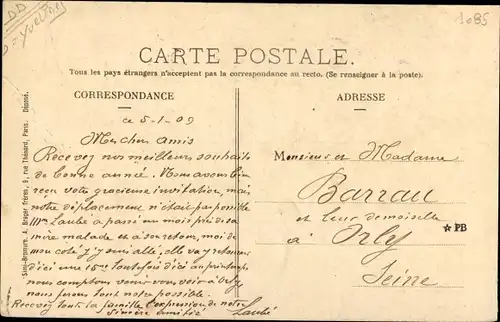 DD
= Yvelines
1085
CARTE POSTALE.
Tous les pays étrangers n'acceptent pas la correspondance au recto. (Se renseigner à la poste).
CORRESPONDANCE
ce 5-1-09
Mes chers Amis
Recevez nos meilleurs souhaits
de bonne année. Nous avons bien
reçu votre gracieuse invitation, mais
notre déplacement n'était pas possible
Mme Laubé a passé un mois près de sa
mère malade et à son retour, moi de
mon coté j'y suis allé, elle va y retourner
d'ici une 15ne toutefois d'ici au printemps
nous comptons venir vous voir à Orly
nous ferons tout notre possible.
Recevez toute la famille l'expression de notre
sincère amitié Laubé
ADRESSE
Monsieur et Madame
Barrau
et leur demoiselle
à Orly
Seine
★ PB
Simi-Bromure, A. Breger Frères, 9, rue Thénard, Paris. Déposé.